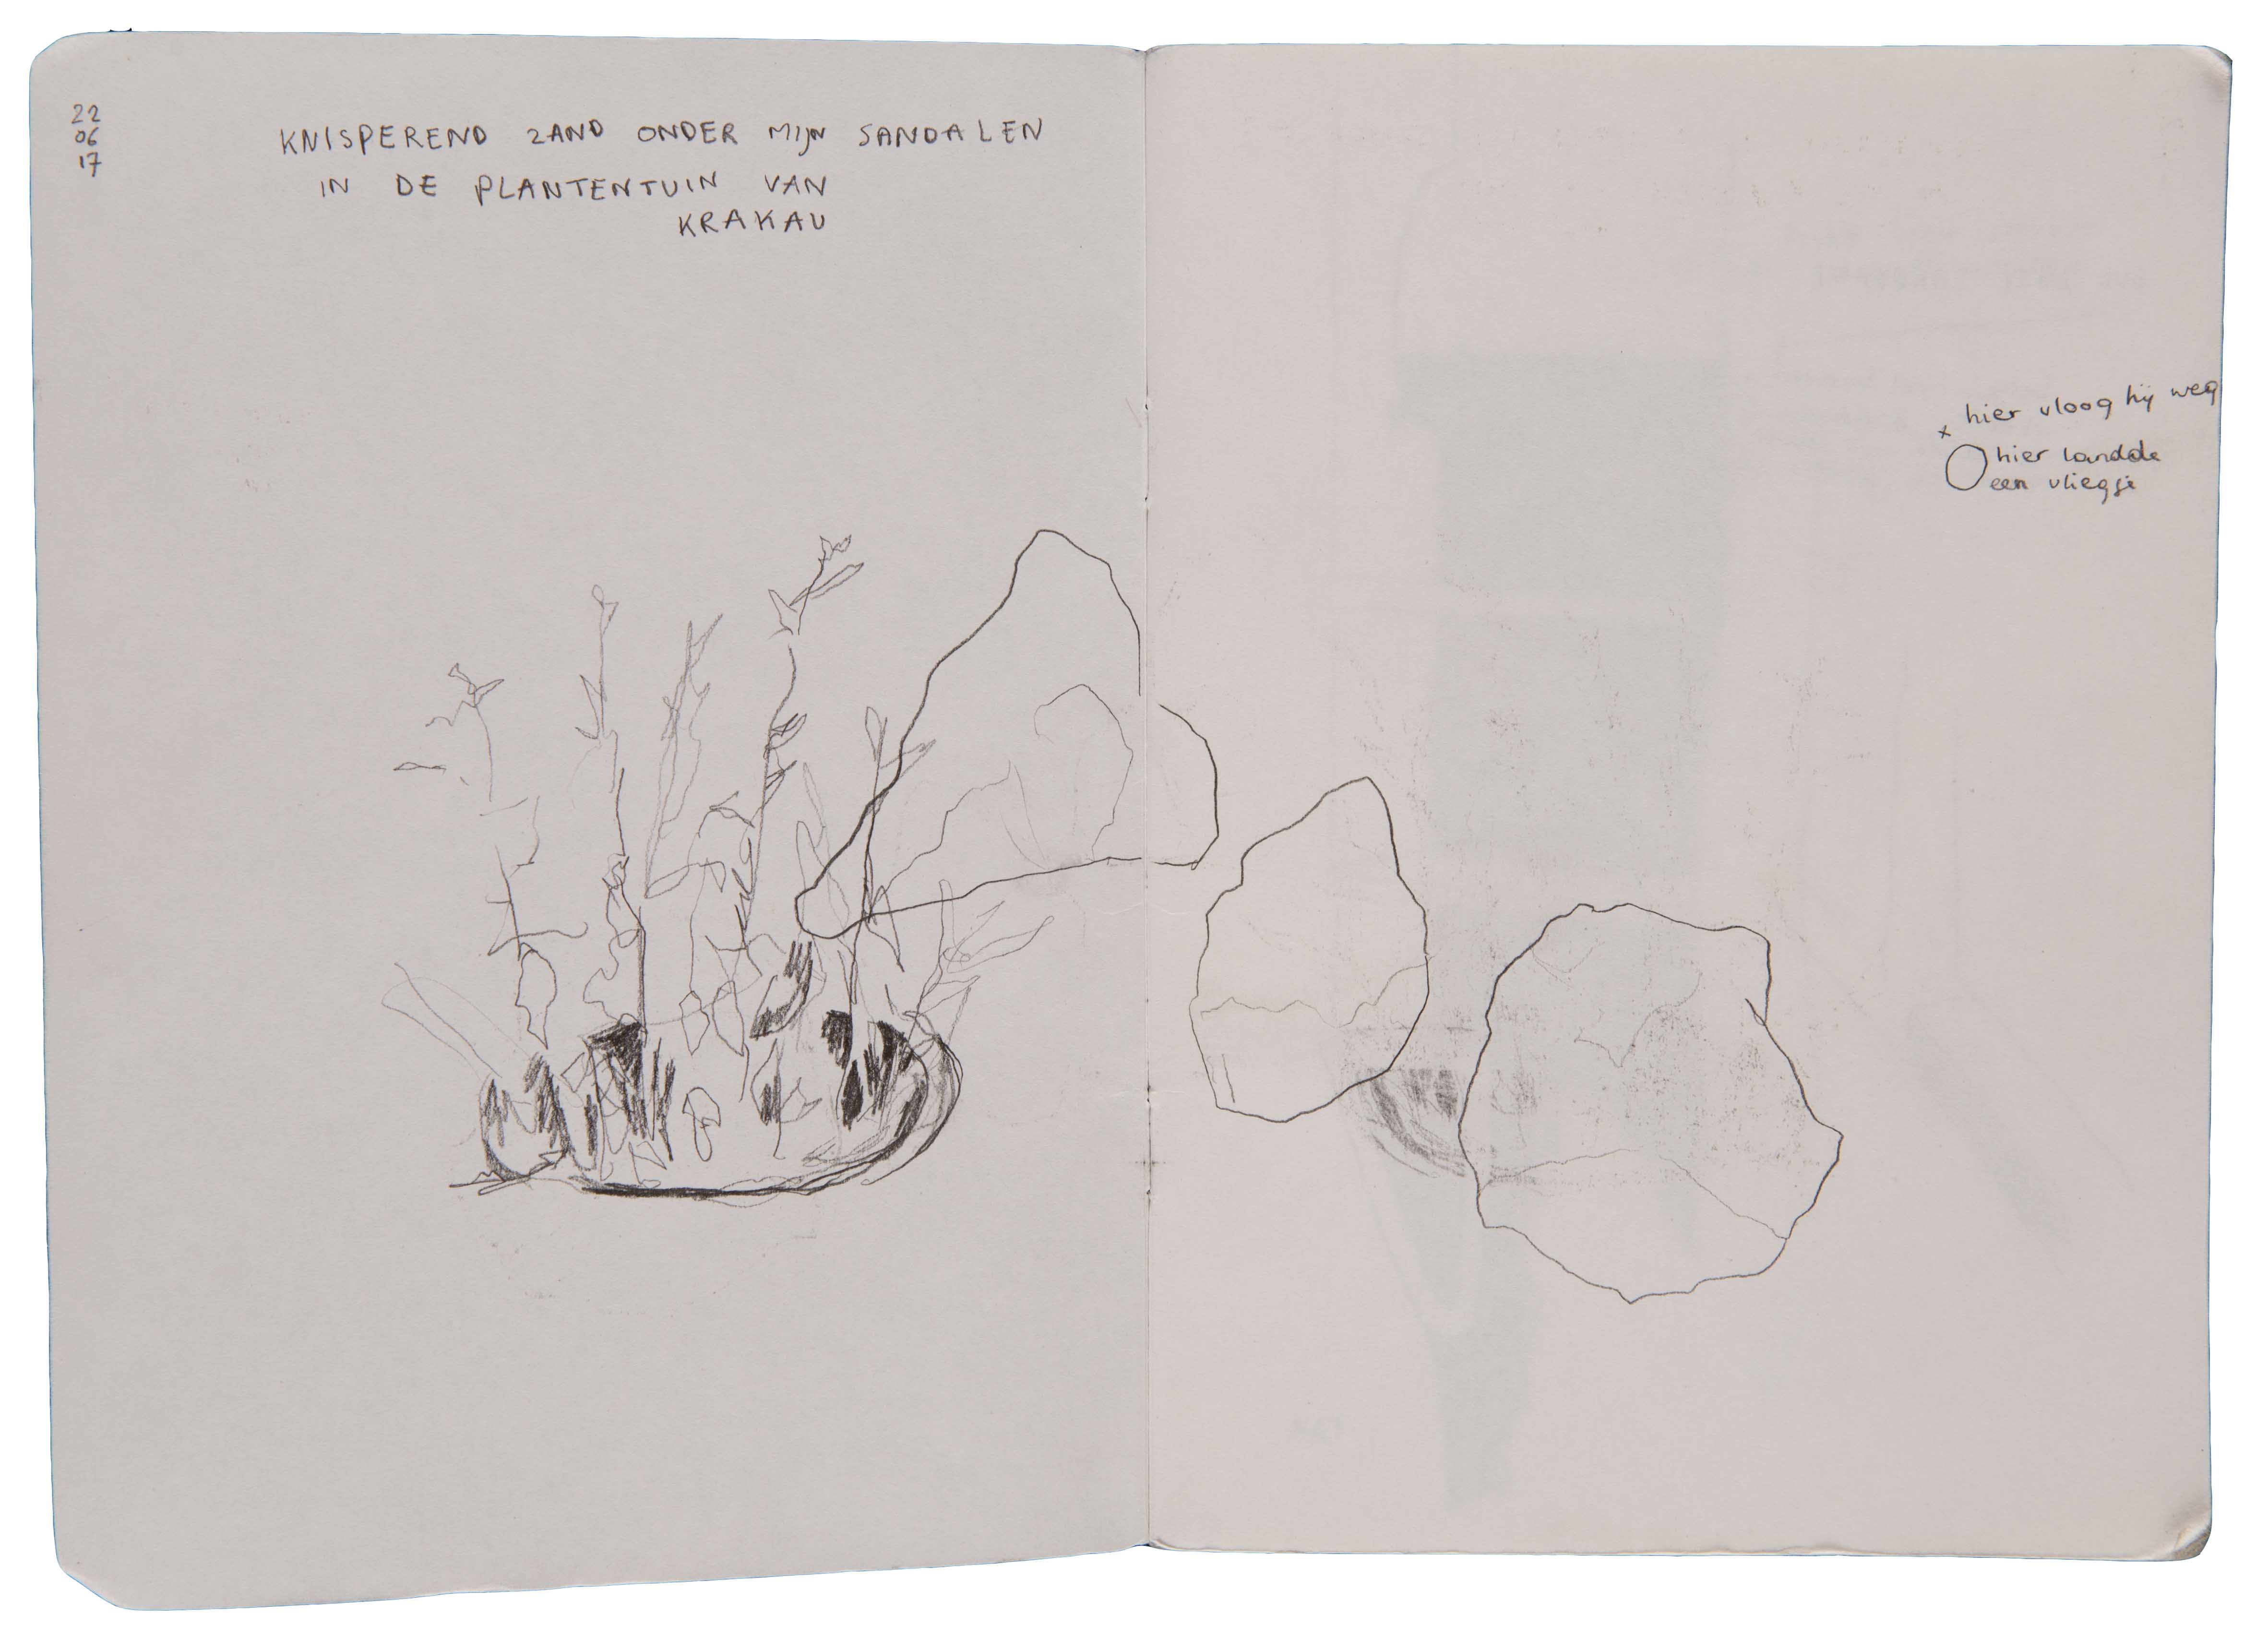 22
06
17
KNISPEREND ZAND ONDER MIJN SANDALEN
IN DE PLANTENTUIN VAN
KRAKAU
x hier vloog hij weg
hier landde
een vliegje